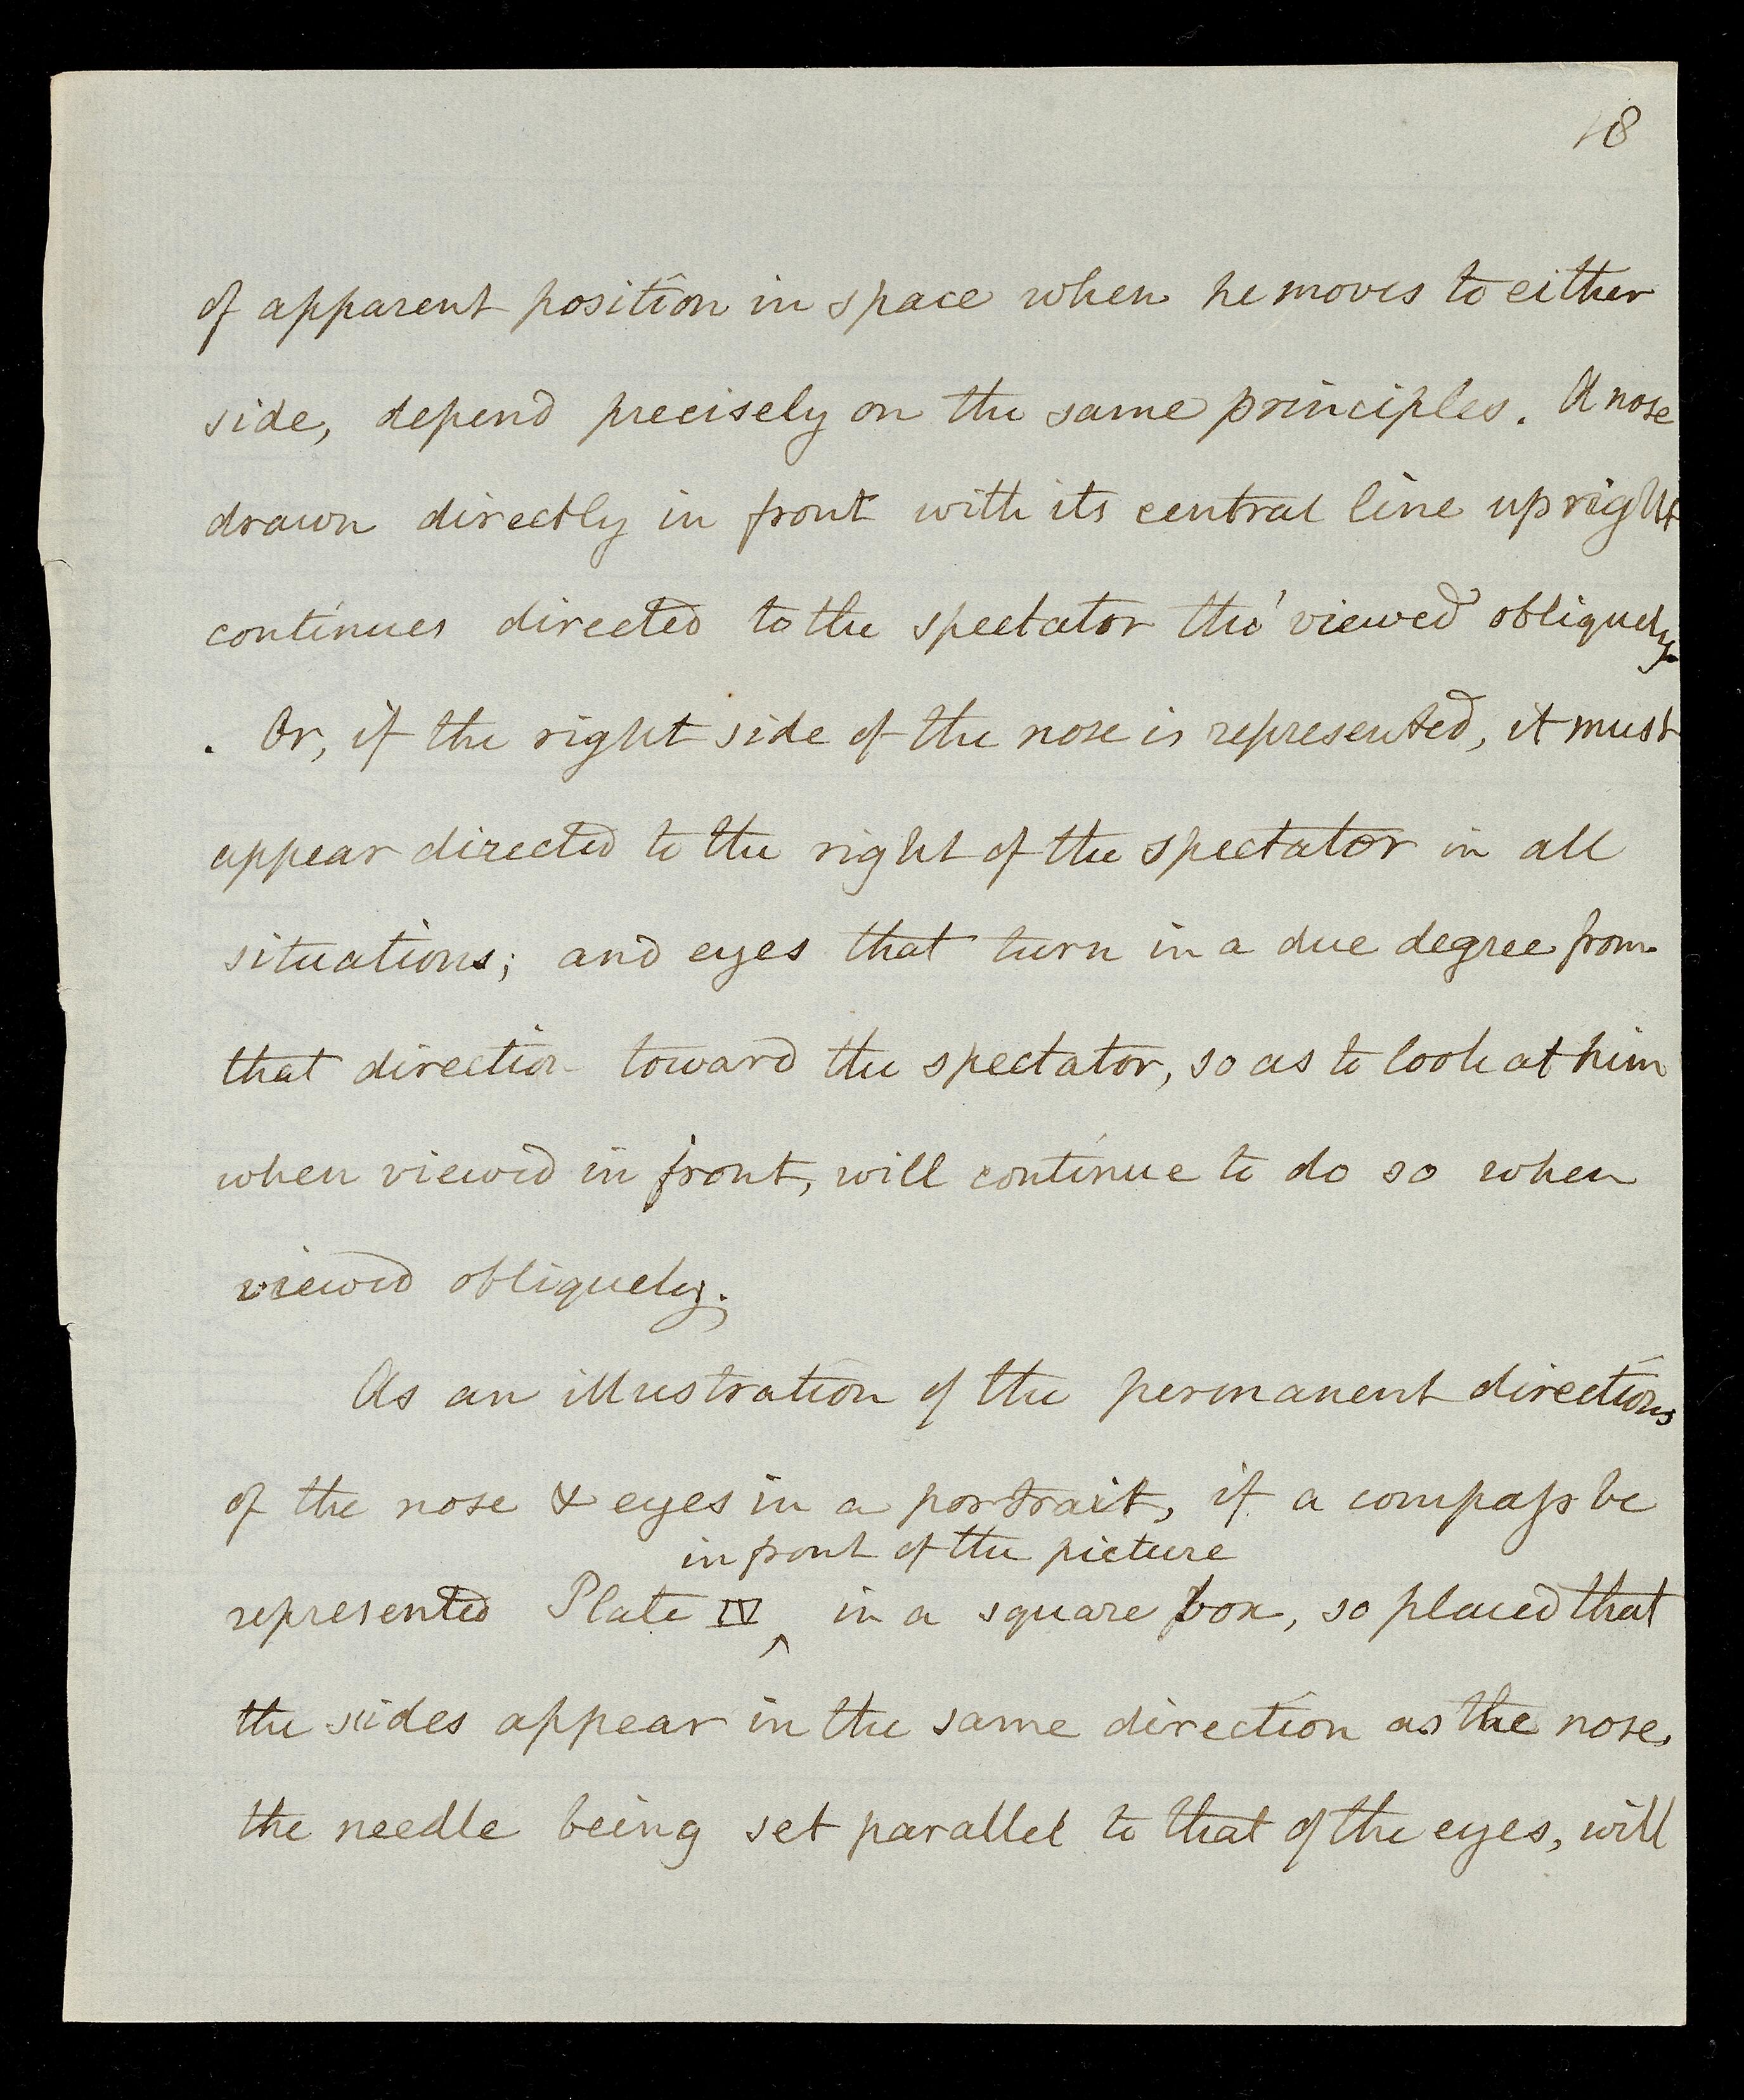 18
of apparent position in space when he moves to either
side, depend precisely on the same principles. A nose
drawn directly in front with its central line upright
continues directed to the spectator tho' viewed obliquely.
. Or, if the right side of the nose is represented, it must
appear directed to the right of the spectator in all
situations; and eyes that turn in a due degree from
that direction toward the spectator, so as to look at him
when viewed in front, will continue to do so when
viewed obliquely.
As an illustration of the permanent directions
of the nose & eyes in a portrait, if a compass be
in front of the picture
represented Plate IV ^ in a square box, so placed that
the sides appear in the same direction as the nose,
the needle being set parallel to that of the eyes, will